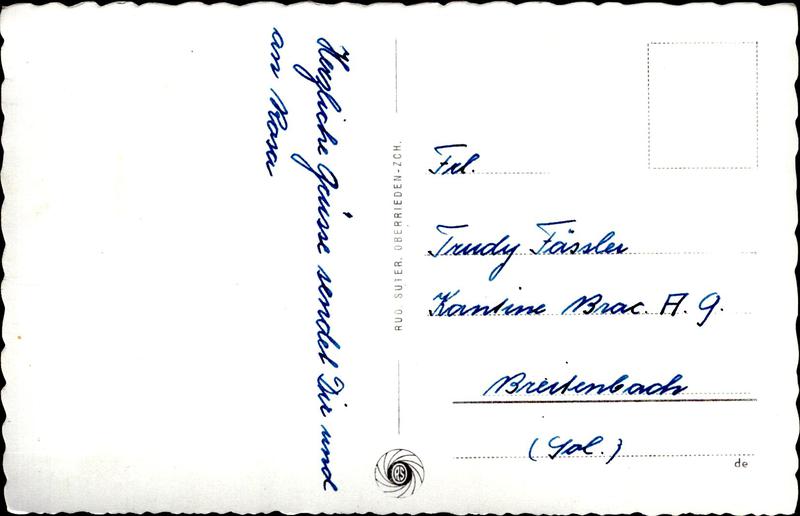 Herzliche Grüsse sendet Dir und
an Rosa
RUD. SUTER, OBERRIEDEN-ZCH.
RS
Frl.
Trudy Fässler
Kantine Brac. A. G.
Breitenbach
(Sol.)
de